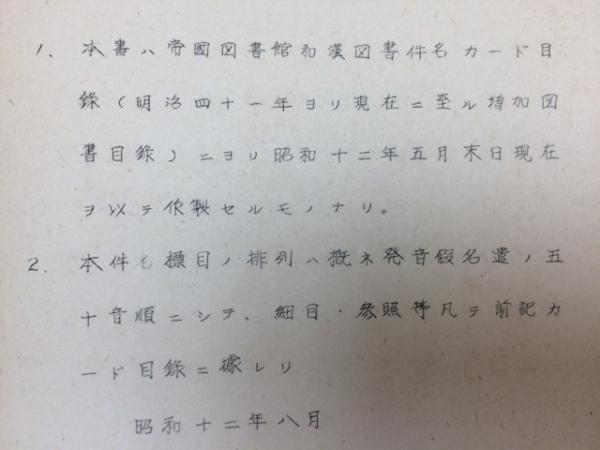 1. 本書ハ帝國図書館和漢図書件名カード目
錄(明治四十一年ヨリ現在ニ至ル増加図
書目錄)ニヨリ昭和十二年五月末日現在
ヲ以テ作製セルモノナリ。
2. 本件名標目ノ排列ハ概ネ発音假名遣ノ五
十音順ニシテ、細目・参照等凡テ前記カ
ード目錄ニ據レリ
昭和十二年八月